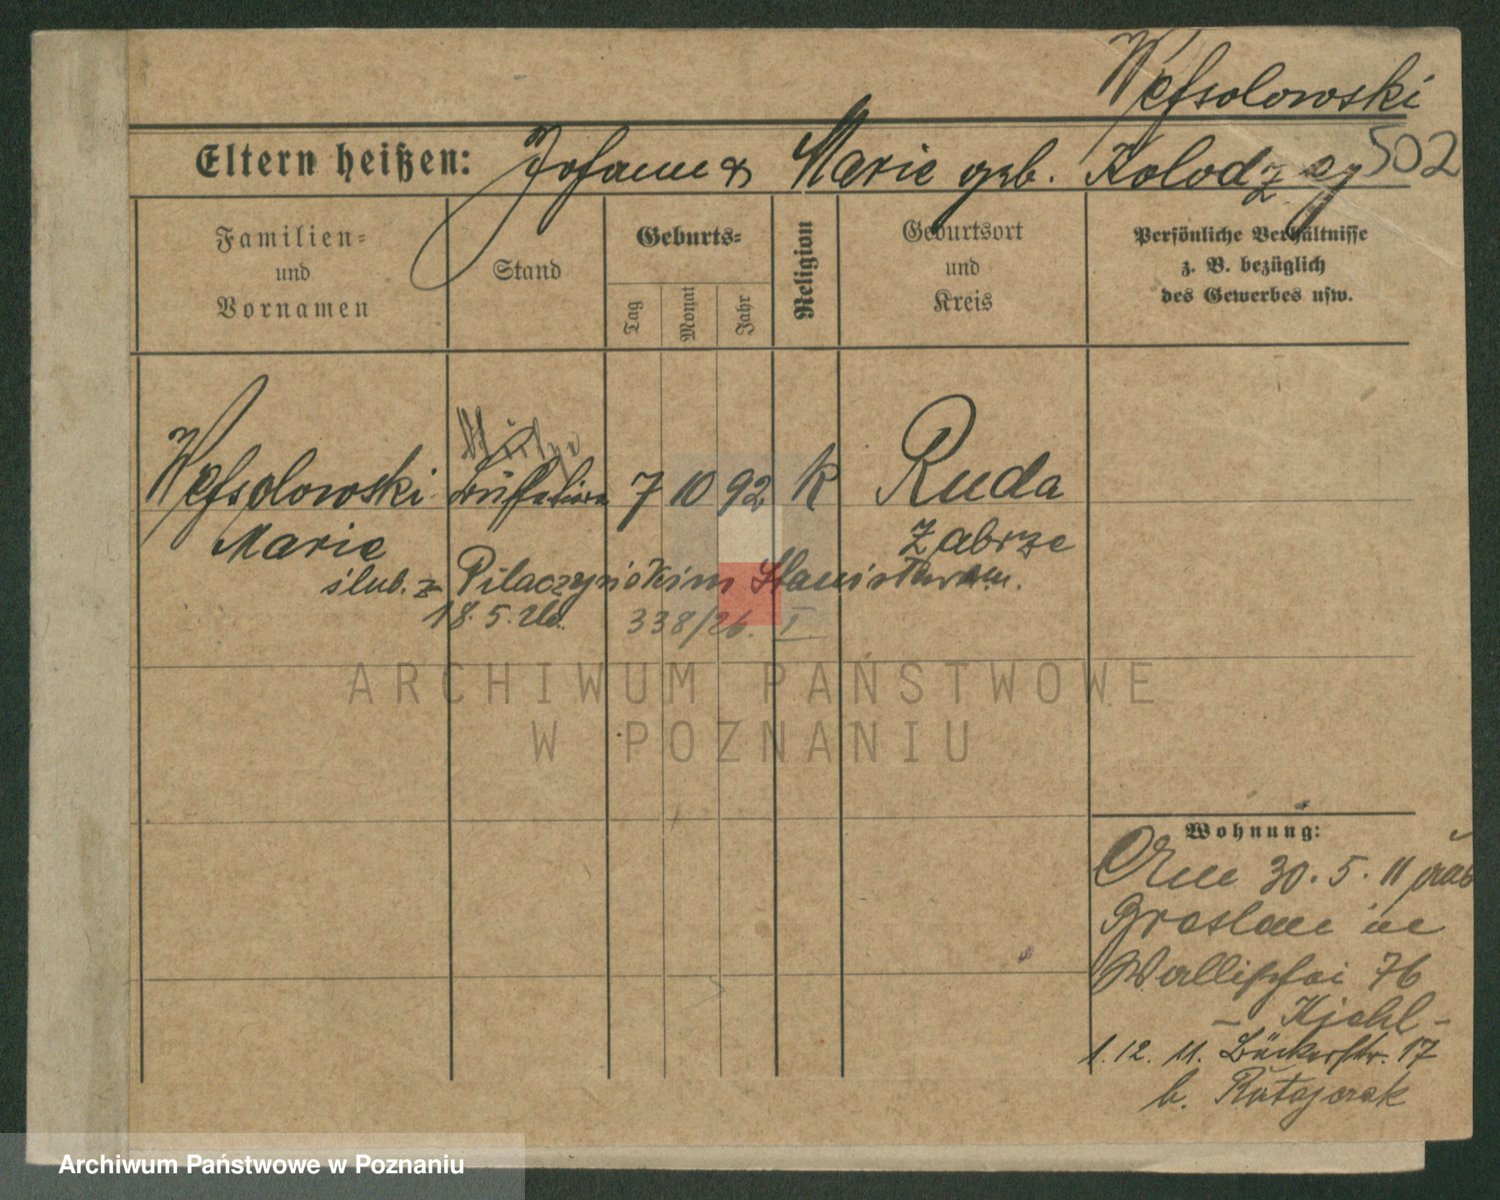 Weſsolowski
502
Eltern heißen: Johann & Marie geb. Kolodzey
Familien- und Vornamen
Stand
Geburts-
Tag
Monat
Jahr
Religion
Geburtsort und Kreis
Persönliche Verhältnisse z. B. bezüglich des Gewerbes usw.
Weſsolowski 7 10 92 K Ruda
Marie Zabrze
ślub. z Pilaczyńskim Stanisławem.
18.5.26. 338/26. I
ARCHIWUM PAŃSTWOWE
W POZNANIU
Wohnung:
30.5.11 aus
Breslau in
Wallischei 76
- Kjehl -
1.12.11. Bäckerstr. 17
b. Ratajczak
Archiwum Państwowe w Poznaniu